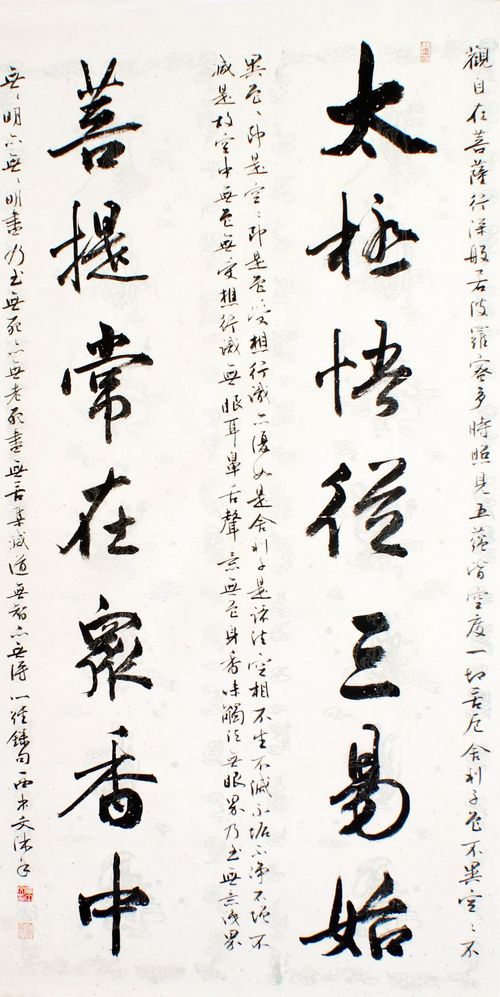 觀自在菩薩行深般若波羅蜜多時照見五蘊皆空度一切苦厄舍利子色不異空〻不
太極悟從三易始
異色〻即是空〻即是色受想行識亦復如是舍利子是諸法空相不生不滅不垢不淨不增不
減是故空中無色無受想行識無眼耳鼻舌聲意無色身香味觸法無眼界乃至無意識界
菩提常在眾香中
無〻明亦無〻明盡乃至無死亦無老死盡無苦集滅道無智亦無得心經錄句